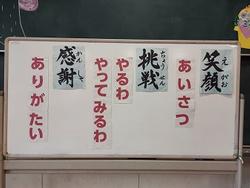 笑顔
えがお
あいさつ
挑戦
ちょうせん
やるわ
やってみるわ
感謝
かんしゃ
ありがたい